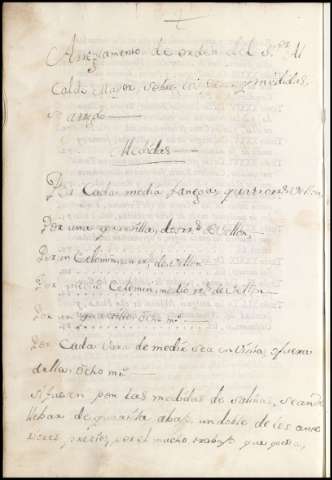 Arreglamento de orden del S.or Al
Calde Mayor sobre los pesos y medidas,
Medidas
Por Cada media fanega, quatro rr.s Vellon,
Por una quartilla, dos rr.s de Vellon,
Por un Celemin, un rr.l de Vellon
Por medio Celemin, medio rr.l de Vellon
Por un ochavo mr.s
Por Cada Vara de medir sea en Villa, o fuera
de ella, Ocho mr.s
Si fuesen por las medidas de salinas, se an de
llebar de quartilla abajo, un doble de los ante
riores precios, por el mucho trabajo que